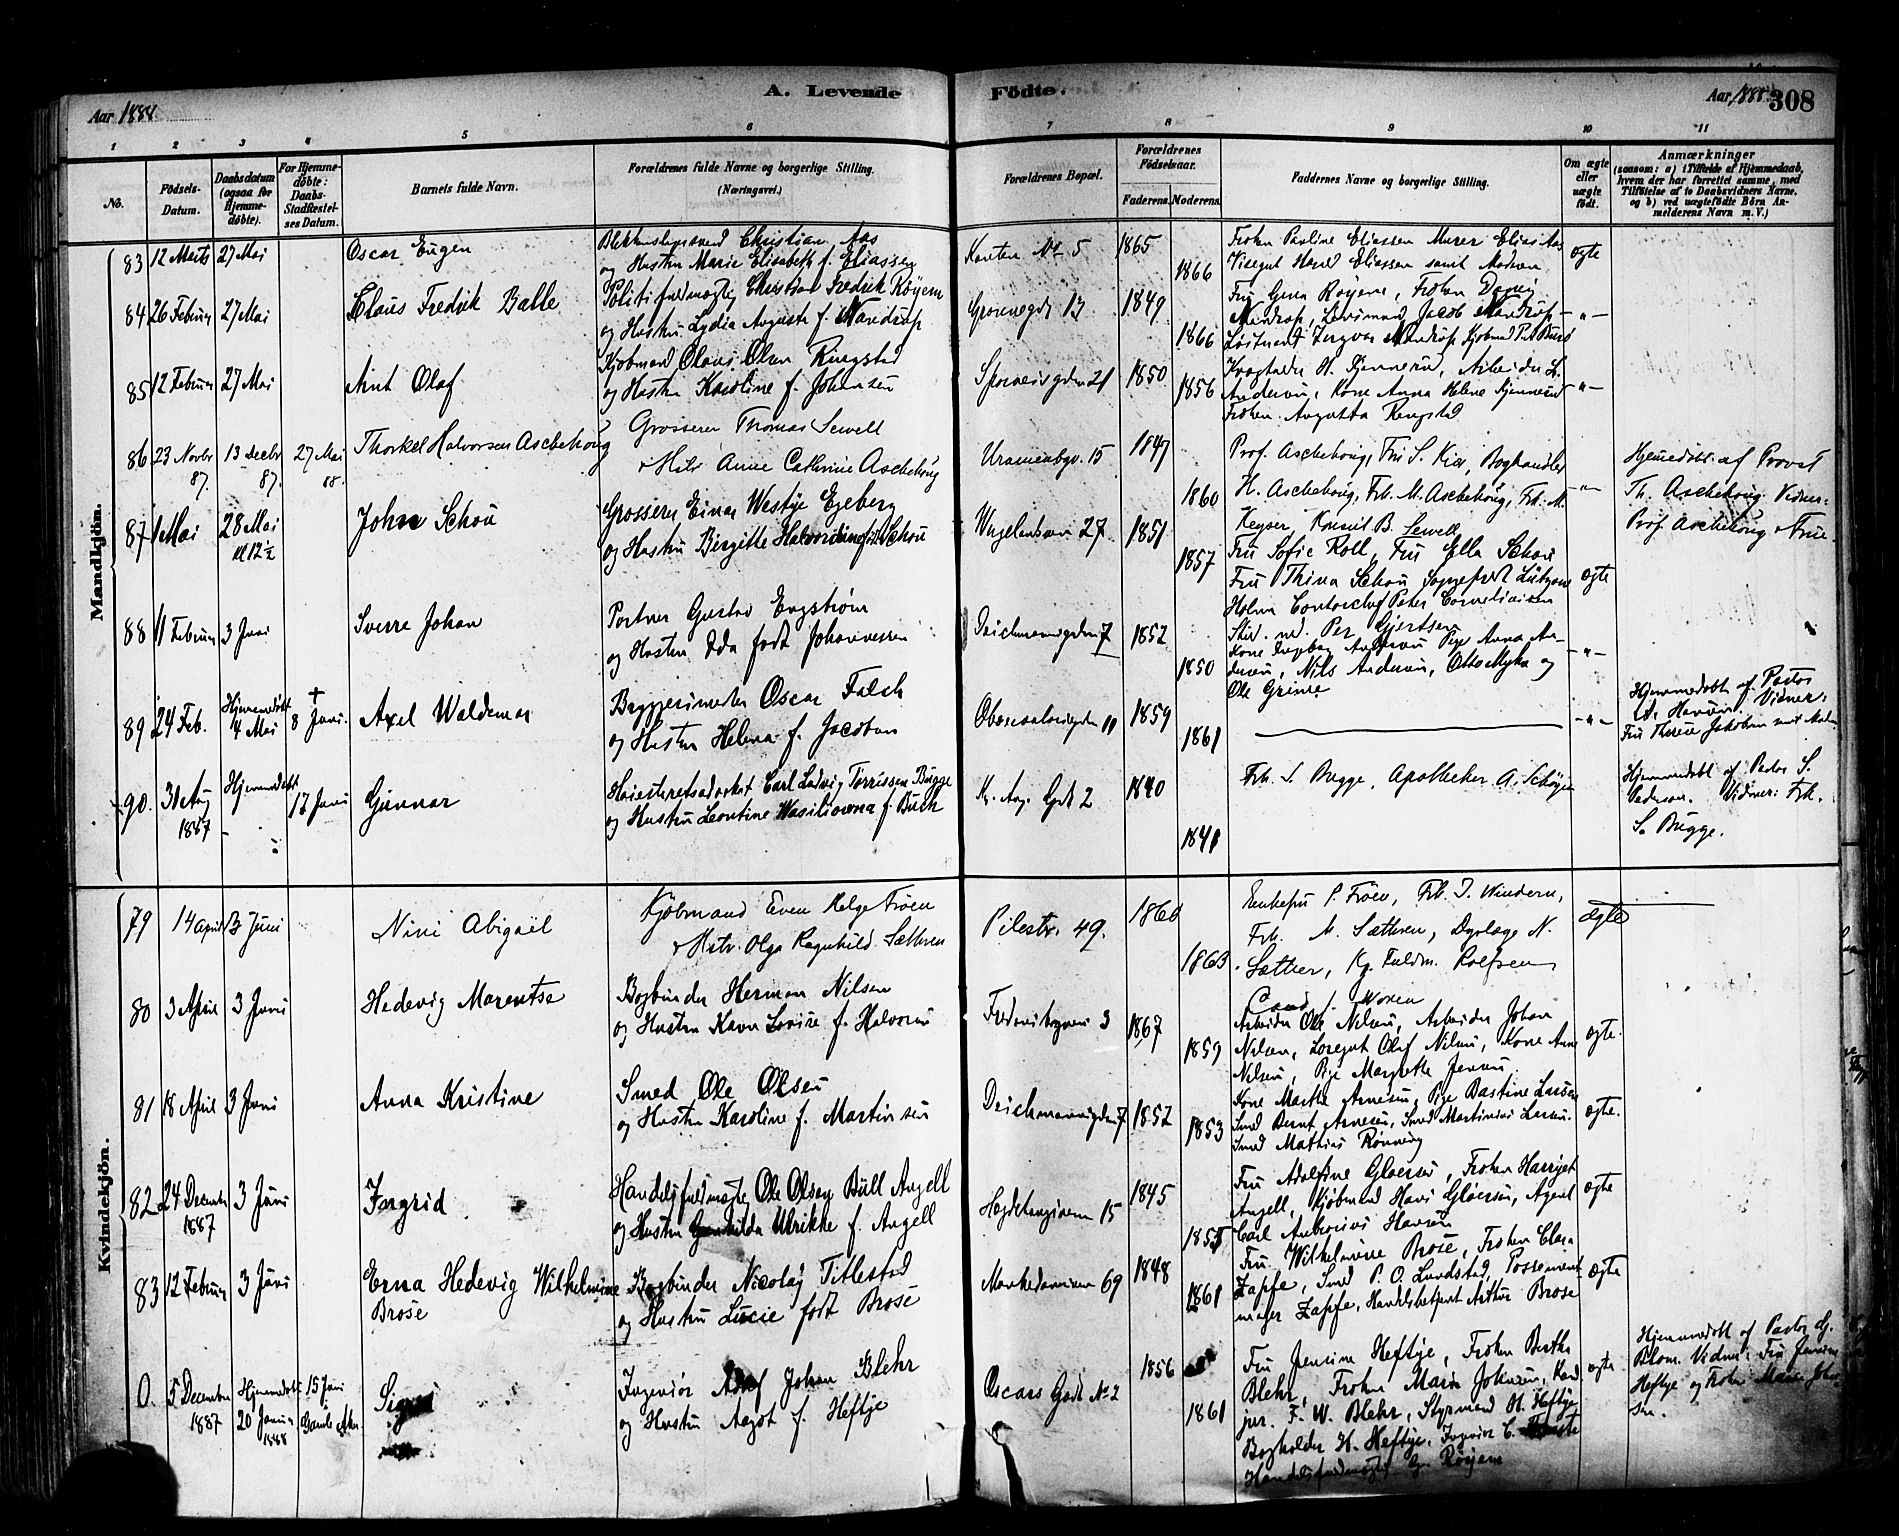 Aar 1888
A. Levende
Födte.
Aar 1888.
308
1 2 3 4 5 6 7 8 9 10 11
No.
Födsels-Datum.
Daabsdatum (ogsaa for Hjemmedöbte).
For Hjemmedöbte: Daabs-Stadfæstelses Datum.
Barnets fulde Navn.
Forældrenes fulde Navne og borgerlige Stilling. (Næringsvei.)
Forældrenes Bopæl.
Forældrenes Födselsaar.
Faderens. Moderens.
Faddernes Navne og borgerlige Stilling.
Om ægte eller uægte födt.
Anmærkninger
(saasom: a) i Tilfælde af Hjemmedaab, hvem der har forrettet samme, med Tilföielse af to Daabsvidners Navne. og b) ved uægtefödte Börn Anmelderens Navn m. V.)
Mandkjön.
83 12 Marts 27 Mai Oscar Eugen
Christian Aas
og Hustru Marie Elisabeth f. Eliassen
No 5 1865 1866
Frøken Pauline Eliassen Murer Elias Aas
Visergut Eliassen samt Moderen
ægte
84 26 Februar 27 Mai Claus Fredrik Balle
Politifuldmægtig Christian Fredrik Røyem
og Hustru Lydia Augusta f. Nandrup
Grønnegd. 13 1849 1866
Fru Røyem, Frøken Dagny
Nandrup, Jacob Nandrup
Løitnant Yngvar Nandrup
- " -
85 12 Februar 27 Mai Arnt Olaf
Kjøbmand Olaus Olsen Ringstad
og Hustru Karoline f. Johansen
21 1850 1856
H. Kjennerud, Arbeider L.
Andersen, Kone Anna Helene Kjennerud
Frøken Augusta Ringstad
" -
86 23 Novbr 87. 13 Decbr 87. 27 Mai 88. Thorkel Halvorsen Aschehoug
Grosserer Thomas Sewell
& Hstr. Anne Cathrine Aschehoug
Uranienbgv. 15 1847 1860
Prof. Aschehoug, Fru S. Kiær, Boghandler
H. Aschehoug, Frk. M. Aschehoug, Frk. M.
Keyser, Konsul B. Sewell
- " -
Hjemmedøbt af Provst
Th. Aschehoug. Vidner:
Prof. Aschehoug & Frue.
87 1 Mai 28 Mai kl 12½ John Schou
Grosserer Einar Westye Egeberg
og Hustru Birgitte Halvordine f. Schou
Wergelandsveien 27. 1851 1857
Fru Sofie Roll, Fru Ella Schou
Fru Thina Schou Sogneprest Lützow
Holm Contorchef Peter Corneliussen
Per Gjertsen
ægte
88 11 Februar 3 Juni Sverre Johan
Portner Gustav Engström
og Hustru Ida født Johannessen
Deichmannsgden 7 1852 1850
Kone Ingebor Andersen Pige Anna An-
dersen, Nils Andersen, Otto Myhre og
Ole Grinie
- " -
89 24 Feb. Hjemmedøbt 4 Mai + 8 Juni. Axel Waldemar
Byggesnedker Oscar Falch
og Hustru Helena f. Jacobsen
Observatoriegden 11 1859 1861
- " -
Hjemmedøbt af Pastor
Hansen. Vidner:
Fru Therese Jakobsen samt Moderen
90. 31 Aug 1887 Hjemmedøbt 17 Juni Gunnar
Høiesteretsadvokat Carl Ludvig Torrissen Bugge
og Hustru Leontine Wasiliowna f. Buch
Kr. Aug. Gd 2 1840 1841
Frk. S. Bugge, Apotheker A. Schøyen
Hjemmedøbt af Pastor S.
Pedersen. Vidner: Frk.
S. Bugge.
Kvindekjön.
79 14 April 3 Juni Nini Abigaël
Kjøbmand Even Helge Frøen
& Hstr. Olga Ragnhild Sæthren
Pilestr. 49. 1860 1863
Enkefru P. Frøen, Frk. J. Windern,
Frk. M. Sæthren, Dyrlæge N.
Sæther, Kg. Fuldm. Rolfsen
Cand.
ægte
80 3 April 3 Juni Hedevig Marentse
Bogbinder Herman Nilsen
og Hustru Karen Lovise f. Halvorsen
3 1867 1859
Arbeider Ole Nilsen, Arbeider Johan
Nilsen, Olaf Nilsen, Kone Anne
Nilsen, Pige Margrethe Jensen
ægte.
81 18 April 3 Juni Anna Kristine
Smed Ole Olsen
og Hustru Karoline f. Martinsen
Deichmannsgden 7 1852 1853
Kone Marthe Arnesen, Pige Bastine Larsen
Smed Bernt Arnesen, Smed Martinius Larsen.
Smed Mathias Rønning
ægte.
82 24 December 1887 3 Juni Ingrid
Handelsfuldmægtig Ole Olsen Bull Angell
og Hustru Gunhilda Ulrikke f. Angell
Hegdehaugsveien 15 1845 1855
Fru Adolfine Gløersen, Frøken Harriet
Angell, Kjøbmand Hans Gløersen, Agent
Carl Ambrosius Hansen
ægte
83 12 Februar 3 Juni Erna Hedevig Wilhelmine
Brose
Bogbinder Nicolay Titlestad
og Hustru Lucie født Brose
Markedsveien 69 1848 1861
Fru Wilhelmine Brose, Frøken Clara
Zapfe, Smed P. O. Lundstad, Possement-
mager Zapfe, Handelsbetjent Arthur Brose
ægte
0. 5 December 1887 Hjemmedøbt 20 Januar 1888 15 Juni Gamle Aker Sigrid
Ingeniør Adolf Johan Blehr
og Hustru Aagot f. Heftye
Oscars Gade No 2 1856 1861
Fru Jensine Heftye, Frøken Berthe
Blehr, Frøken Marie Johnsen, Kand
jur. F. W. Blehr, Styrmand H. Heftye,
Bogholder H. Heftye, Ingeniør C.
Handelsfuldmægtig Røyem
ægte
Hjemmedøbt af Pastor Gj.
Blom. Vidner: Fru Jensine
Heftye og Frøken Marie John-
sen.